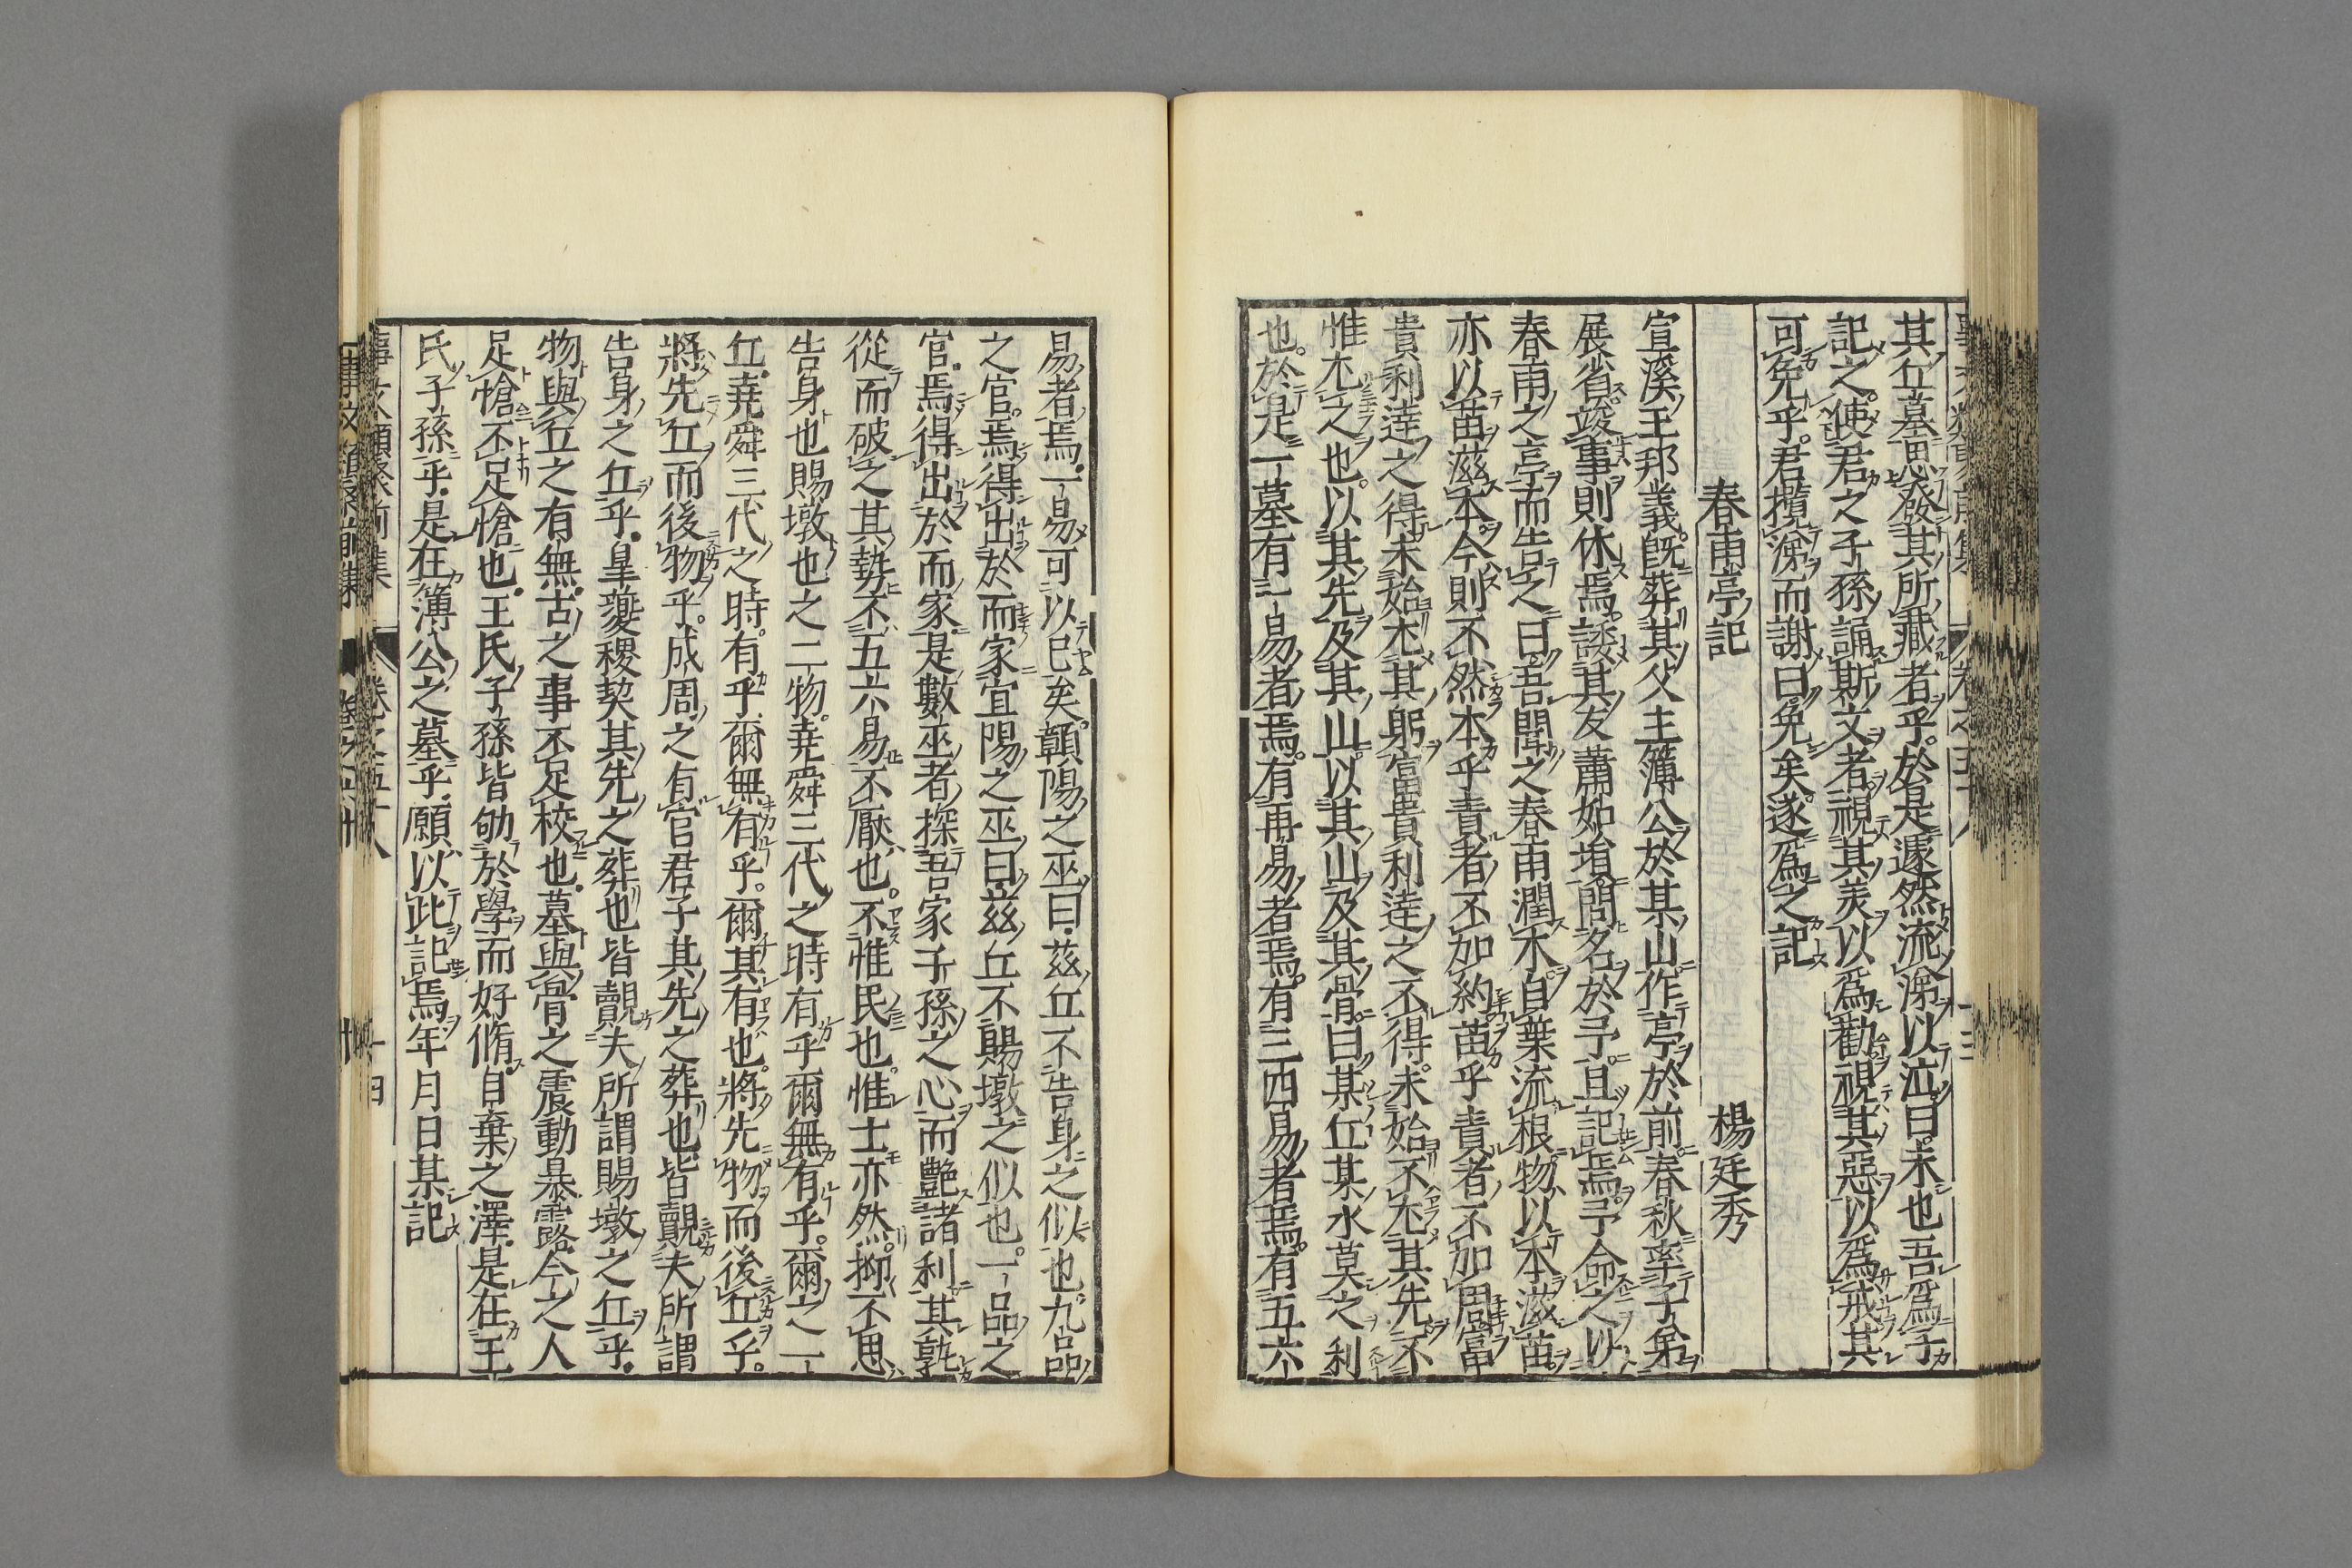 其丘墓思發其所藏者乎於是遽然流涕以泣曰未也吾爲子
記之使君之子孫誦斯文者視其美以爲勸視其惡以爲戒其
可免乎君攬涕而謝曰免矣遂爲之記
春雨亭記 楊廷秀
宣溪王邦義旣葬其父主簿公於某山作亭於前春秋率子弟
展省竣事則休焉諉其友蕭如塤問名於予且記焉予命之以
春雨之亭而告之曰吾聞之春雨潤木自葉流根物以本滋苗
亦以苗滋本今則不然本乎責者不加約苗乎責者不加周富
貴利達之得未始尤其躬富貴利達之不得未始不尤其先不
惟尤之也以其先及其山以其山及其骨曰某丘某水莫之利
也於是一墓有一易者焉有再易者焉有三四易者焉有五六
易者焉一易可以已矣顛陽之巫曰茲丘不告身之似也九品
之官焉得出於而家宜陽之巫曰茲丘不賜墩之似也一品之
官焉得出於而家是數巫者探吾家子孫之心而艷諸利其孰
從而破之其勢不五六易不厭也不惟民也惟士亦然抑不思
告身也賜墩也之二物堯舜三代之時有乎爾無有乎爾之一
丘堯舜三代之時有乎爾無有乎爾其有也將先物而後丘乎
將先丘而後物乎成周之有官君子其先之葬也皆覿夫所謂
告身之丘乎皐夔稷契其先之葬也皆覿夫所謂賜墩之丘乎
物與丘之有無古之事不足校也墓與骨之震動暴露今之人
足愴不足愴也王氏子孫皆劬於學而好脩自棄之澤是在王
氏子孫乎是在簿公之墓乎願以此記焉年月日某記
事文類聚前集 卷之五十八 十四